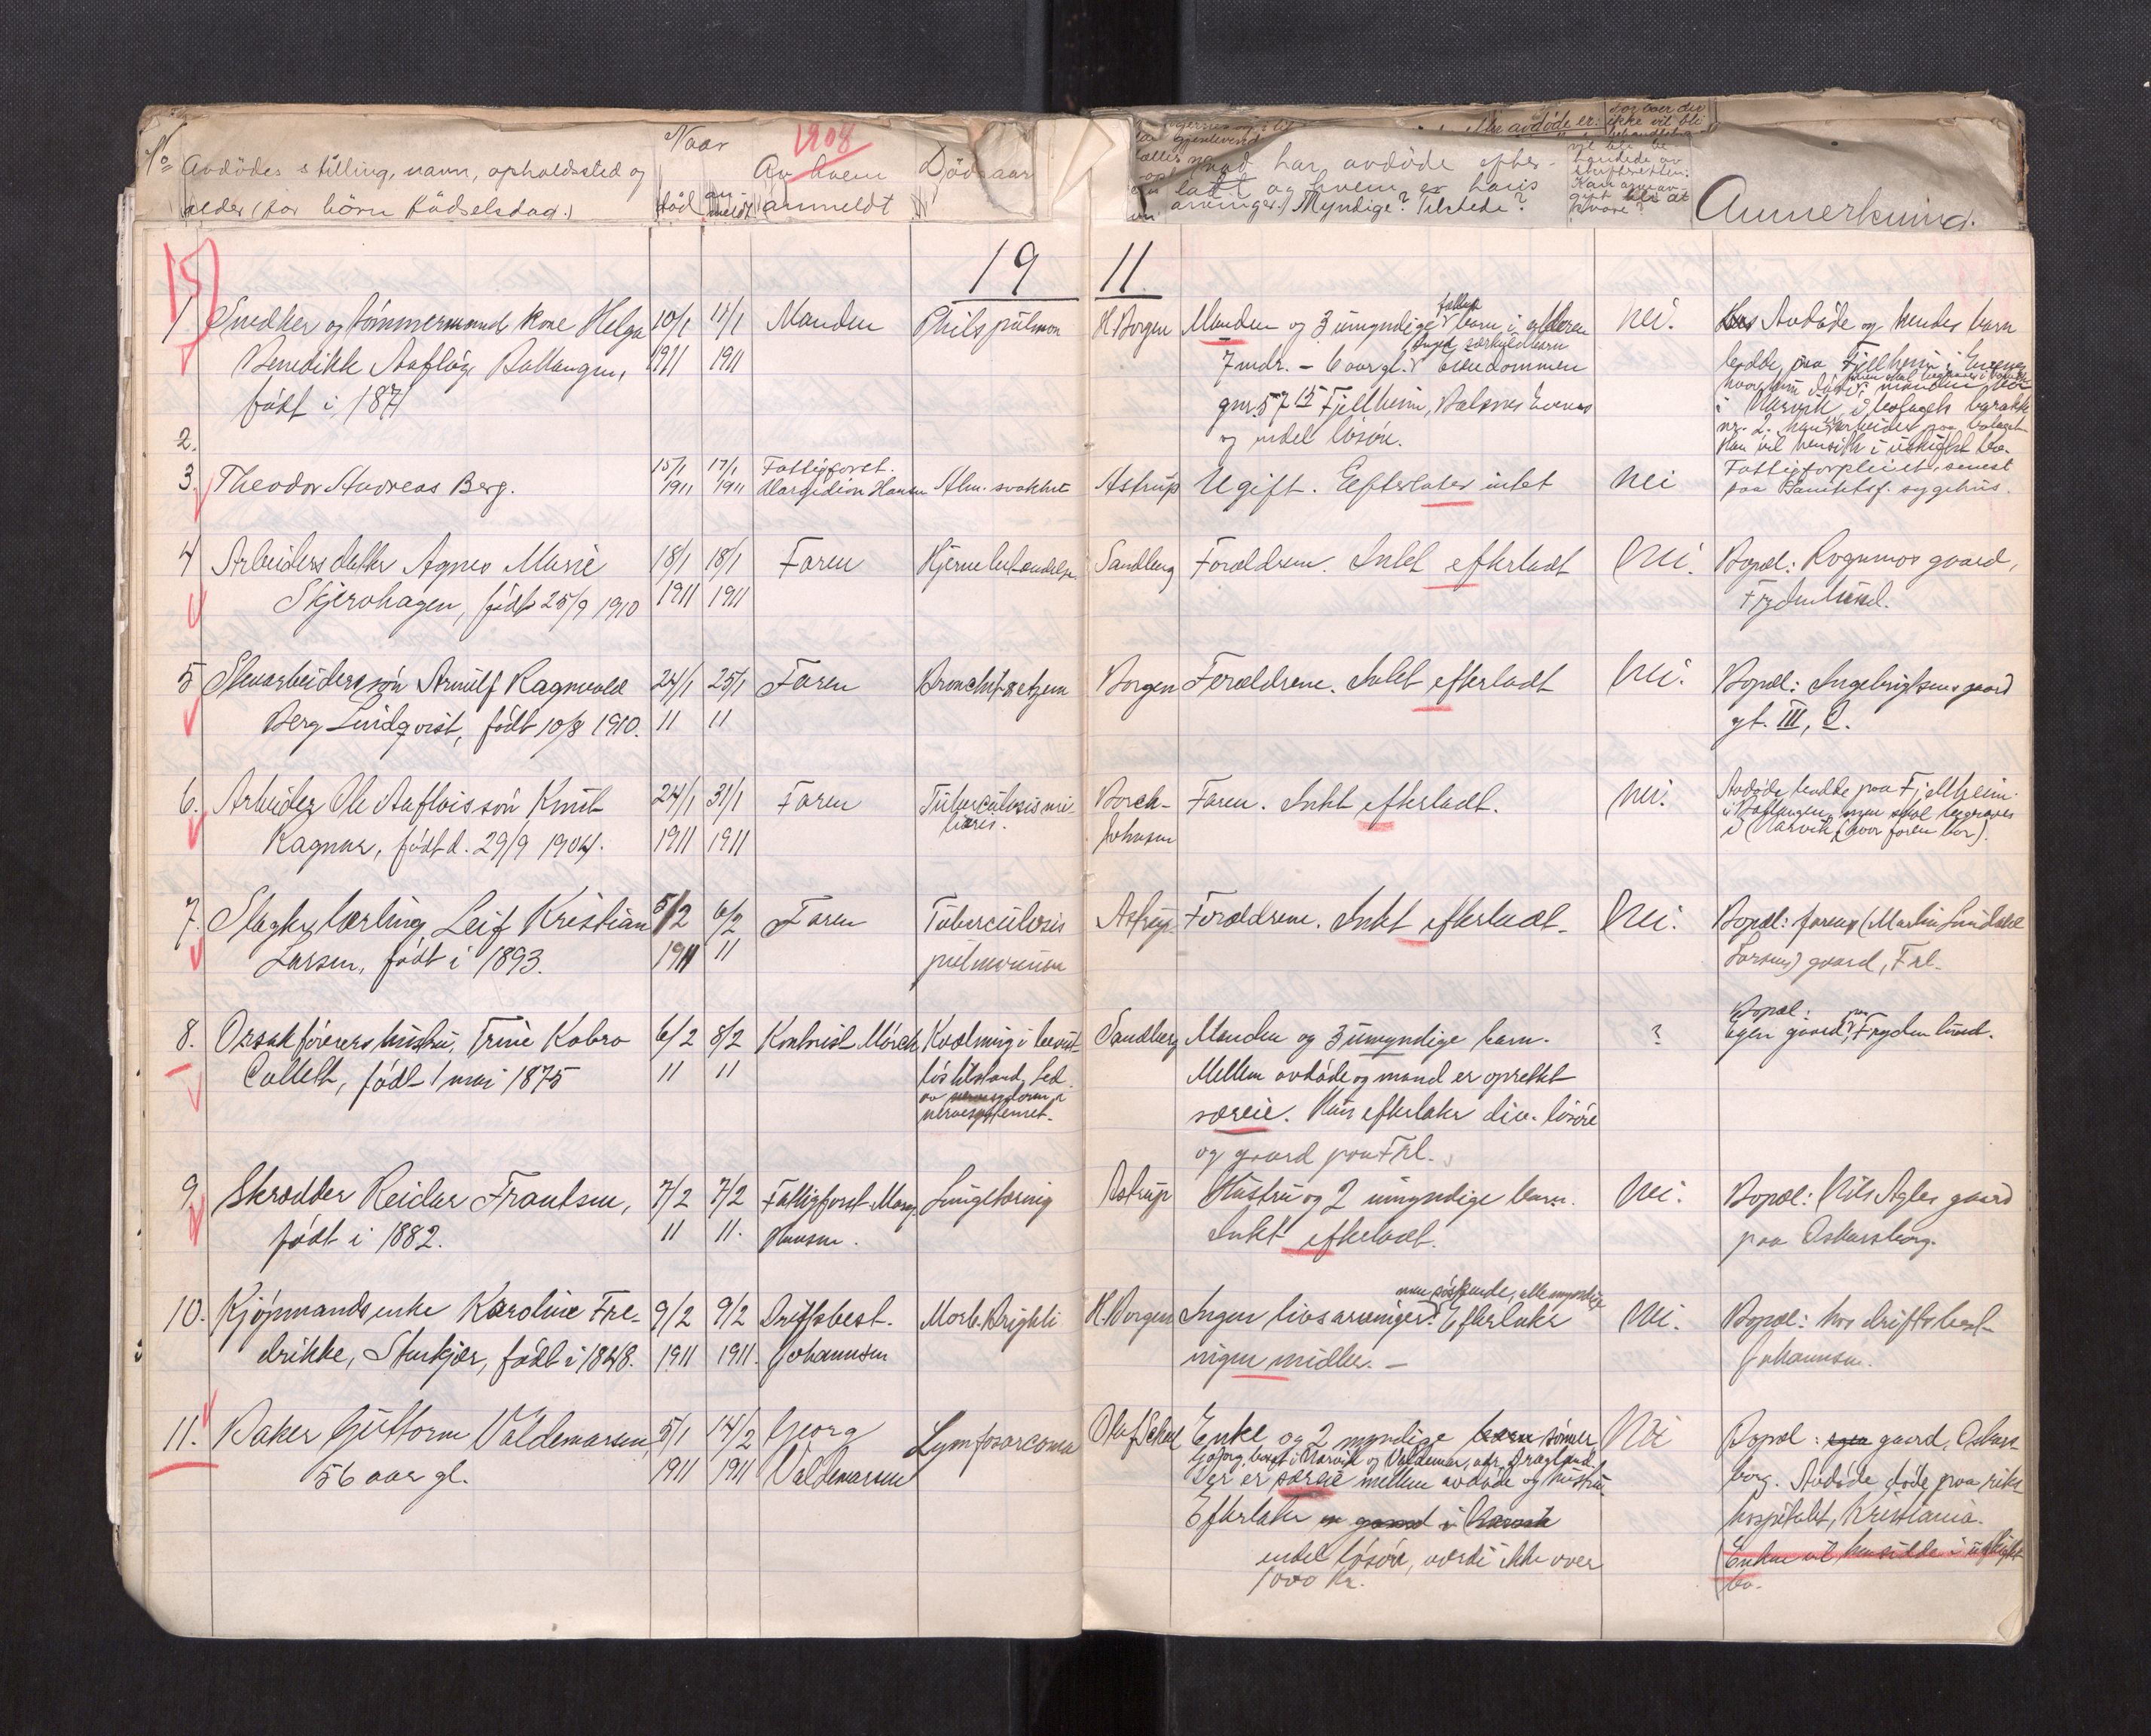 1908
No Avdödes stilling, navn, opholdssted og
alder (for börn födselsdag.)
Naar
död anmeldt
Av hvem
anmeldt
Dödsaar
har avdöde efter-
latt og hvem er hans
arvinger? Myndige? Tilstede?
Anmerkning.
15
19 11
1 Snedker og tömmermands kone Helga
Benedikte Ballangen,
födt i 1871
10/1 1911
11/1 1911
Manden
Phtis pulmon
H. Borgen
Manden og 3 umyndige fælles barn i alderen
Ingen særkulsbarn
7 mdr. - 6 aar gl. Eiendommen
gnr. 57 15 Fjellheim, Evenes
og endel lösöre.
Nei.
Avdöde og hendes barn
bodde paa Fjellheim i Evenes
hvor hun döde; manden bor
i Narvik, barakke
nr. 2.
2.
3. Theodor Andreas Berg.
15/1 1911
17/1 1911
Fattigforst.
Hansen
Alm. svakhet
Astrup
Ugift. Efterlater intet
Nei
Fattigforpleiet, senest
paa Sanitetsf. sygehus.
4 Arbeiders datter Agnes Marie
Skjerohagen, födt 25/9 1910
18/1 1911
18/1 1911
Faren
Hjernebetændelse
Sandberg
Forældrene. Intet efterladt
Nei.
Bopæl: gaard,
Frydenlund.
5 Arnulf Ragnvald
Berg Lindqvist, födt 10/8 1910.
24/1 11
25/1 11
Faren
Bronchit & ekzem
Borgen
Forældrene. Intet efterladt
Nei.
Bopæl: Ingebrigtsens gaard
gt. III, 2.
6. Arbeider Ole sön Knut
Ragnar, födt d. 29/9 1904.
24/1 1911
31/1 1911
Faren
Tuberculosis mi-
liaris.
Borch-
Johnsen
Faren. Intet efterladt.
Nei.
Avdöde bodde paa Fjellheim
i Ballangen, men skal begraves
i Narvik (hvor faren bor).
7. Slagterlærling Leif Kristian
Larsen, födt i 1893.
5/2 1911
6/2 11
Faren
Tuberculosis
pulmonum
Astrup
Forældrene. Intet efterladt.
Nei.
Bopæl: farens (Martin Lundahl
Larsens) gaard, Frl.
8. Overretssakförers hustru, Trine Kobro
Collett, födt 1 mai 1875
6/2 11
8/2 11
Kontorist Mörch
Kvælning i bevist-
lös tilstand, Led.
av
nervesystemet.
Sandberg
Manden og 3 umyndige barn.
Mellem avdöde og mand er oprettet
særeie. Hun efterlater div. lösöre
og gaard paa Frl.
?
Bopæl:
Egen gaard paa Frydenlund.
9 Skrædder Reidar Frantsen,
födt i 1882.
7/2 11
7/2 11.
Fattigforst. Marg.
Hansen.
Lungetæring
Astrup
Hustru og 2 umyndige barn.
Intet efterladt.
Nei.
Bopæl: Nils Agles gaard
paa Oskarsborg.
10. Kjöpmandsenke Karoline Fre-
drikke, Sturkjær, födt i 1848.
9/2 1911
9/2 1911.
Driftsbest.
Johannesen
Morb. Brighti
H. Borgen
Ingen livsarvinger, men söskende, alle myndige. Efterlater
ingen midler. -
Nei.
Bopæl: hos driftsbest.
Johannesen.
11. Baker Guttorm Valdemarsen,
56 aar gl.
5/1 1911
14/2 1911
Georg
Valdemarsen
Lymfosarcoma
Enke og 2 myndige barn sönner
Georg, bosat i Narvik og Valdemar,
Der er særeie mellem avdöde og hustru.
Efterlater en gaard i Narvik
endel lösöre, værdi ikke over
1000 kr.
Nei
Bopæl: egen gaard, Oskars-
borg. Avdöde döde paa riks-
hospitalet, Kristiania.
Enken vil hensidde i uskiftet
bo.